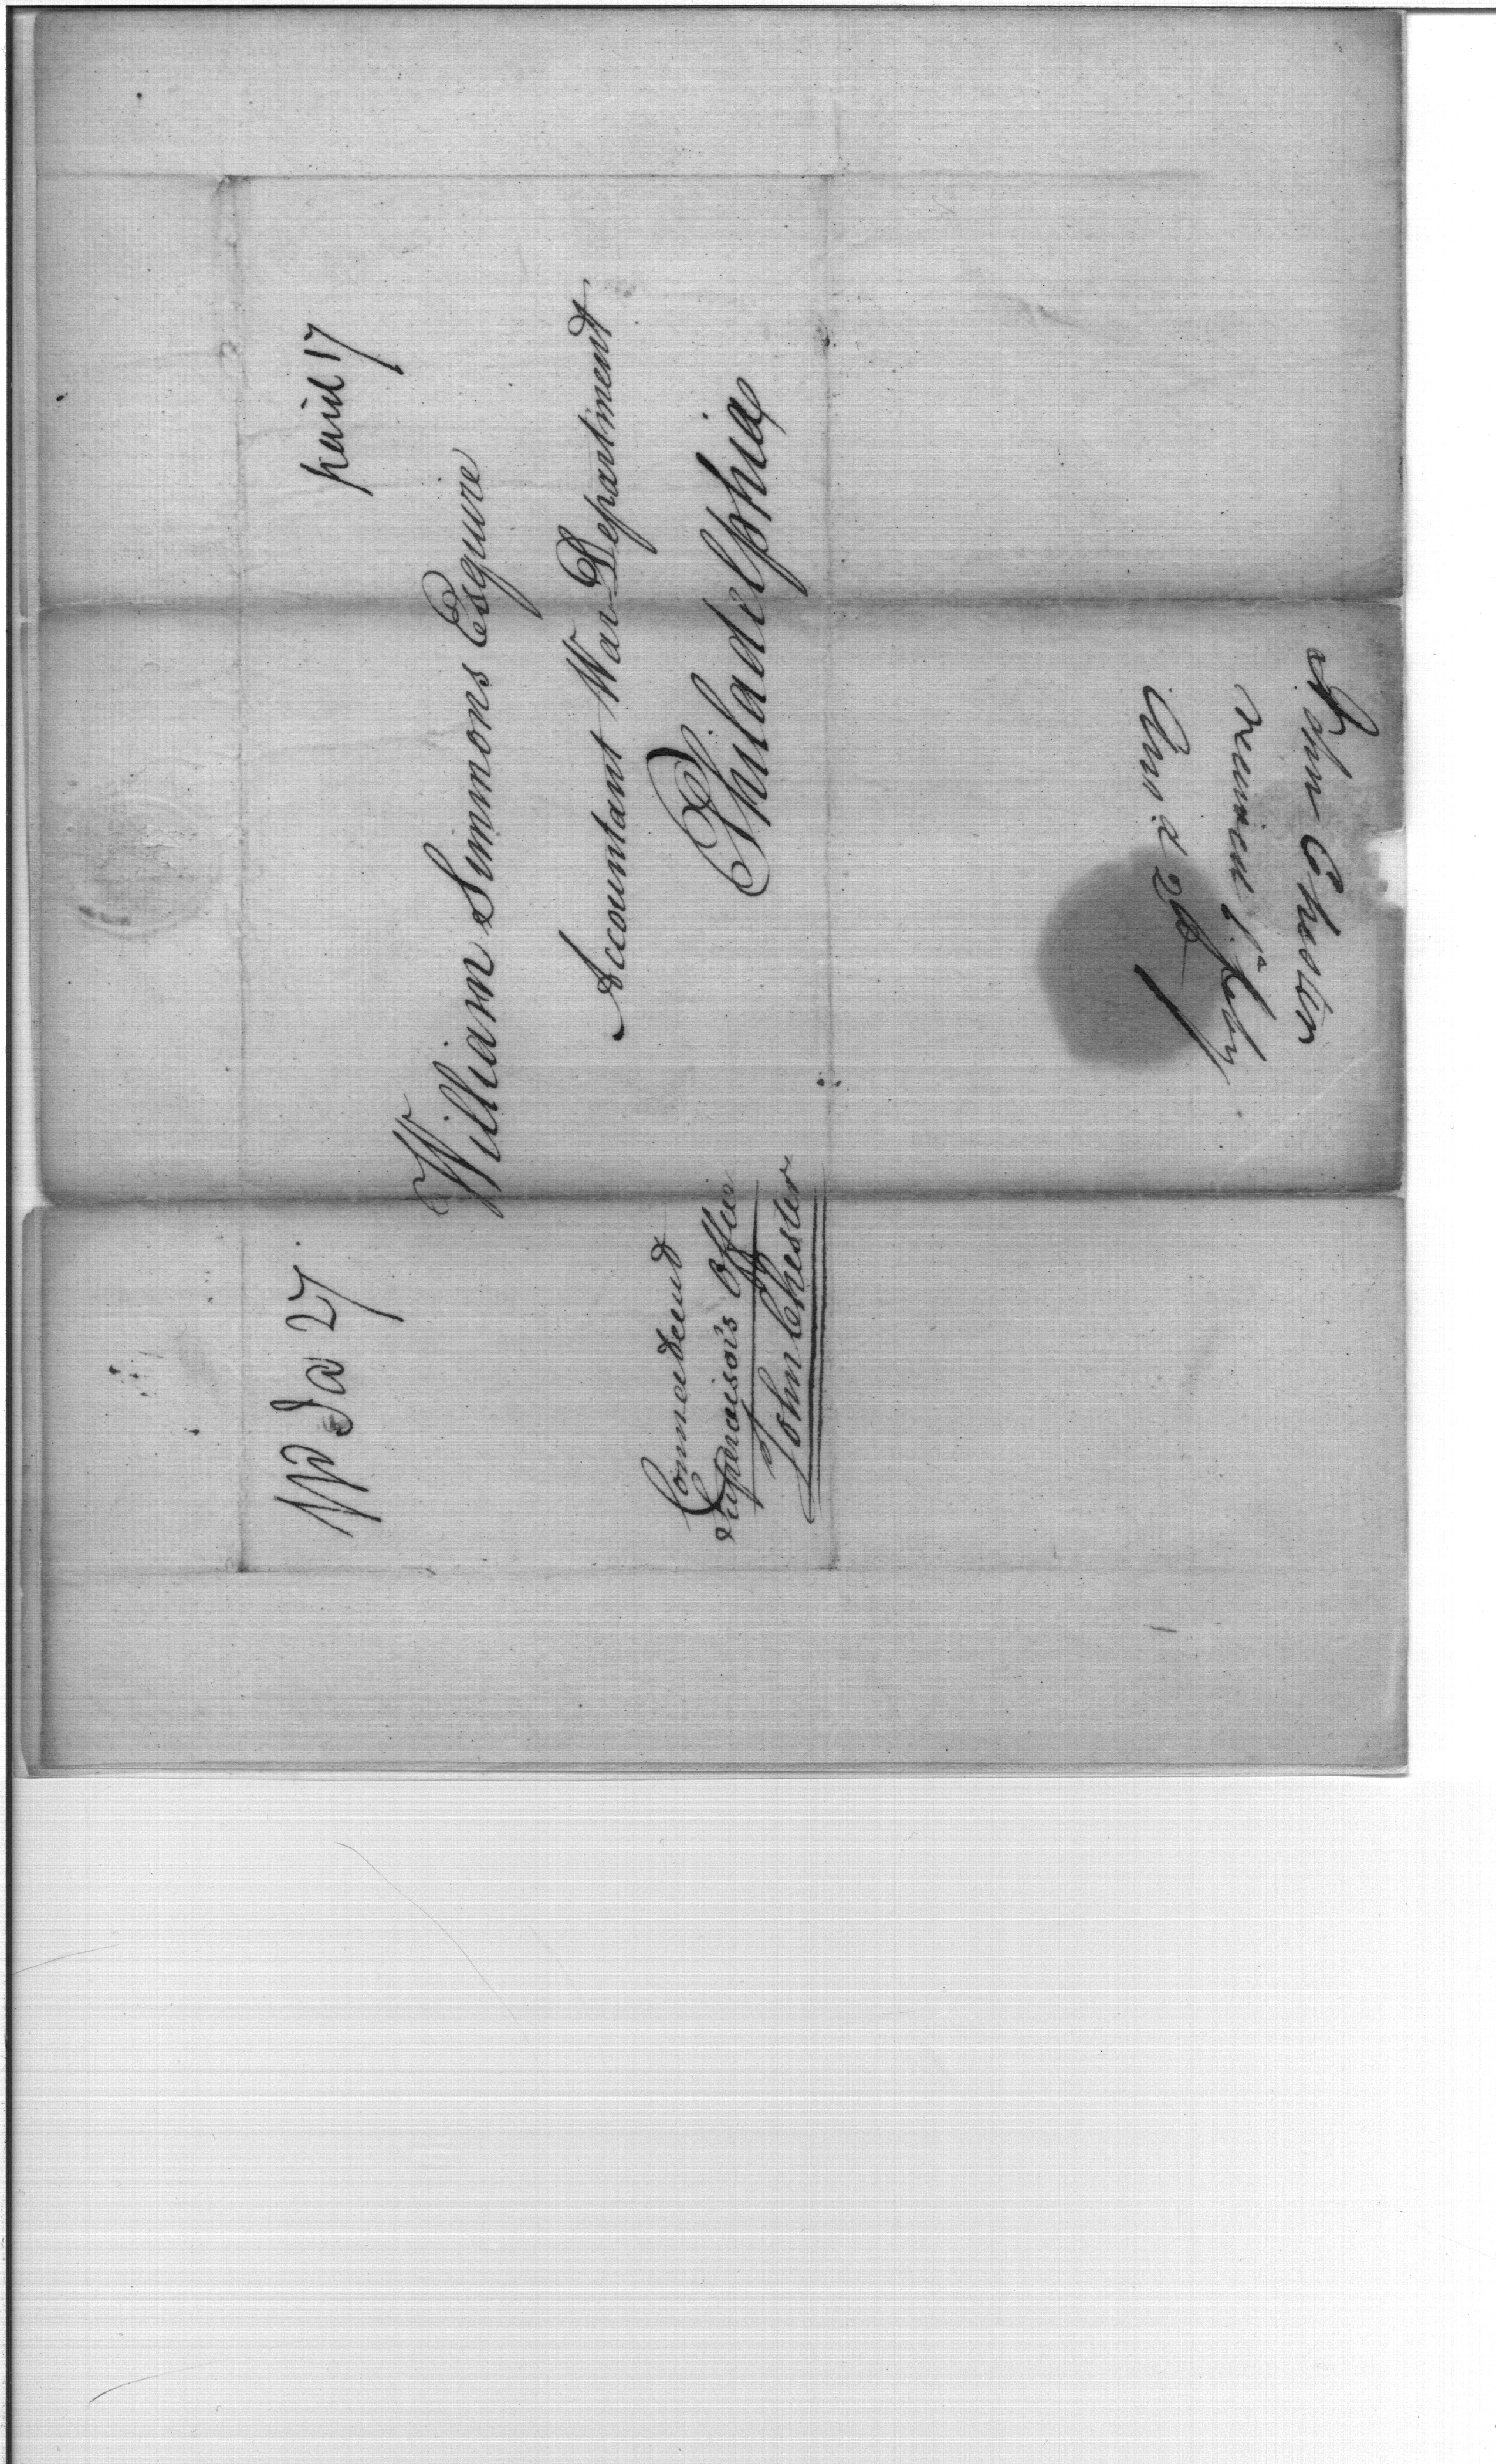 Wd Ja 27
paid 17
William Simmons Esquire
Accountant War Department
Philadelphia
Connecticut
Supervisor's Office
John Chester
John Chester
received 1st Feby
Ans.d